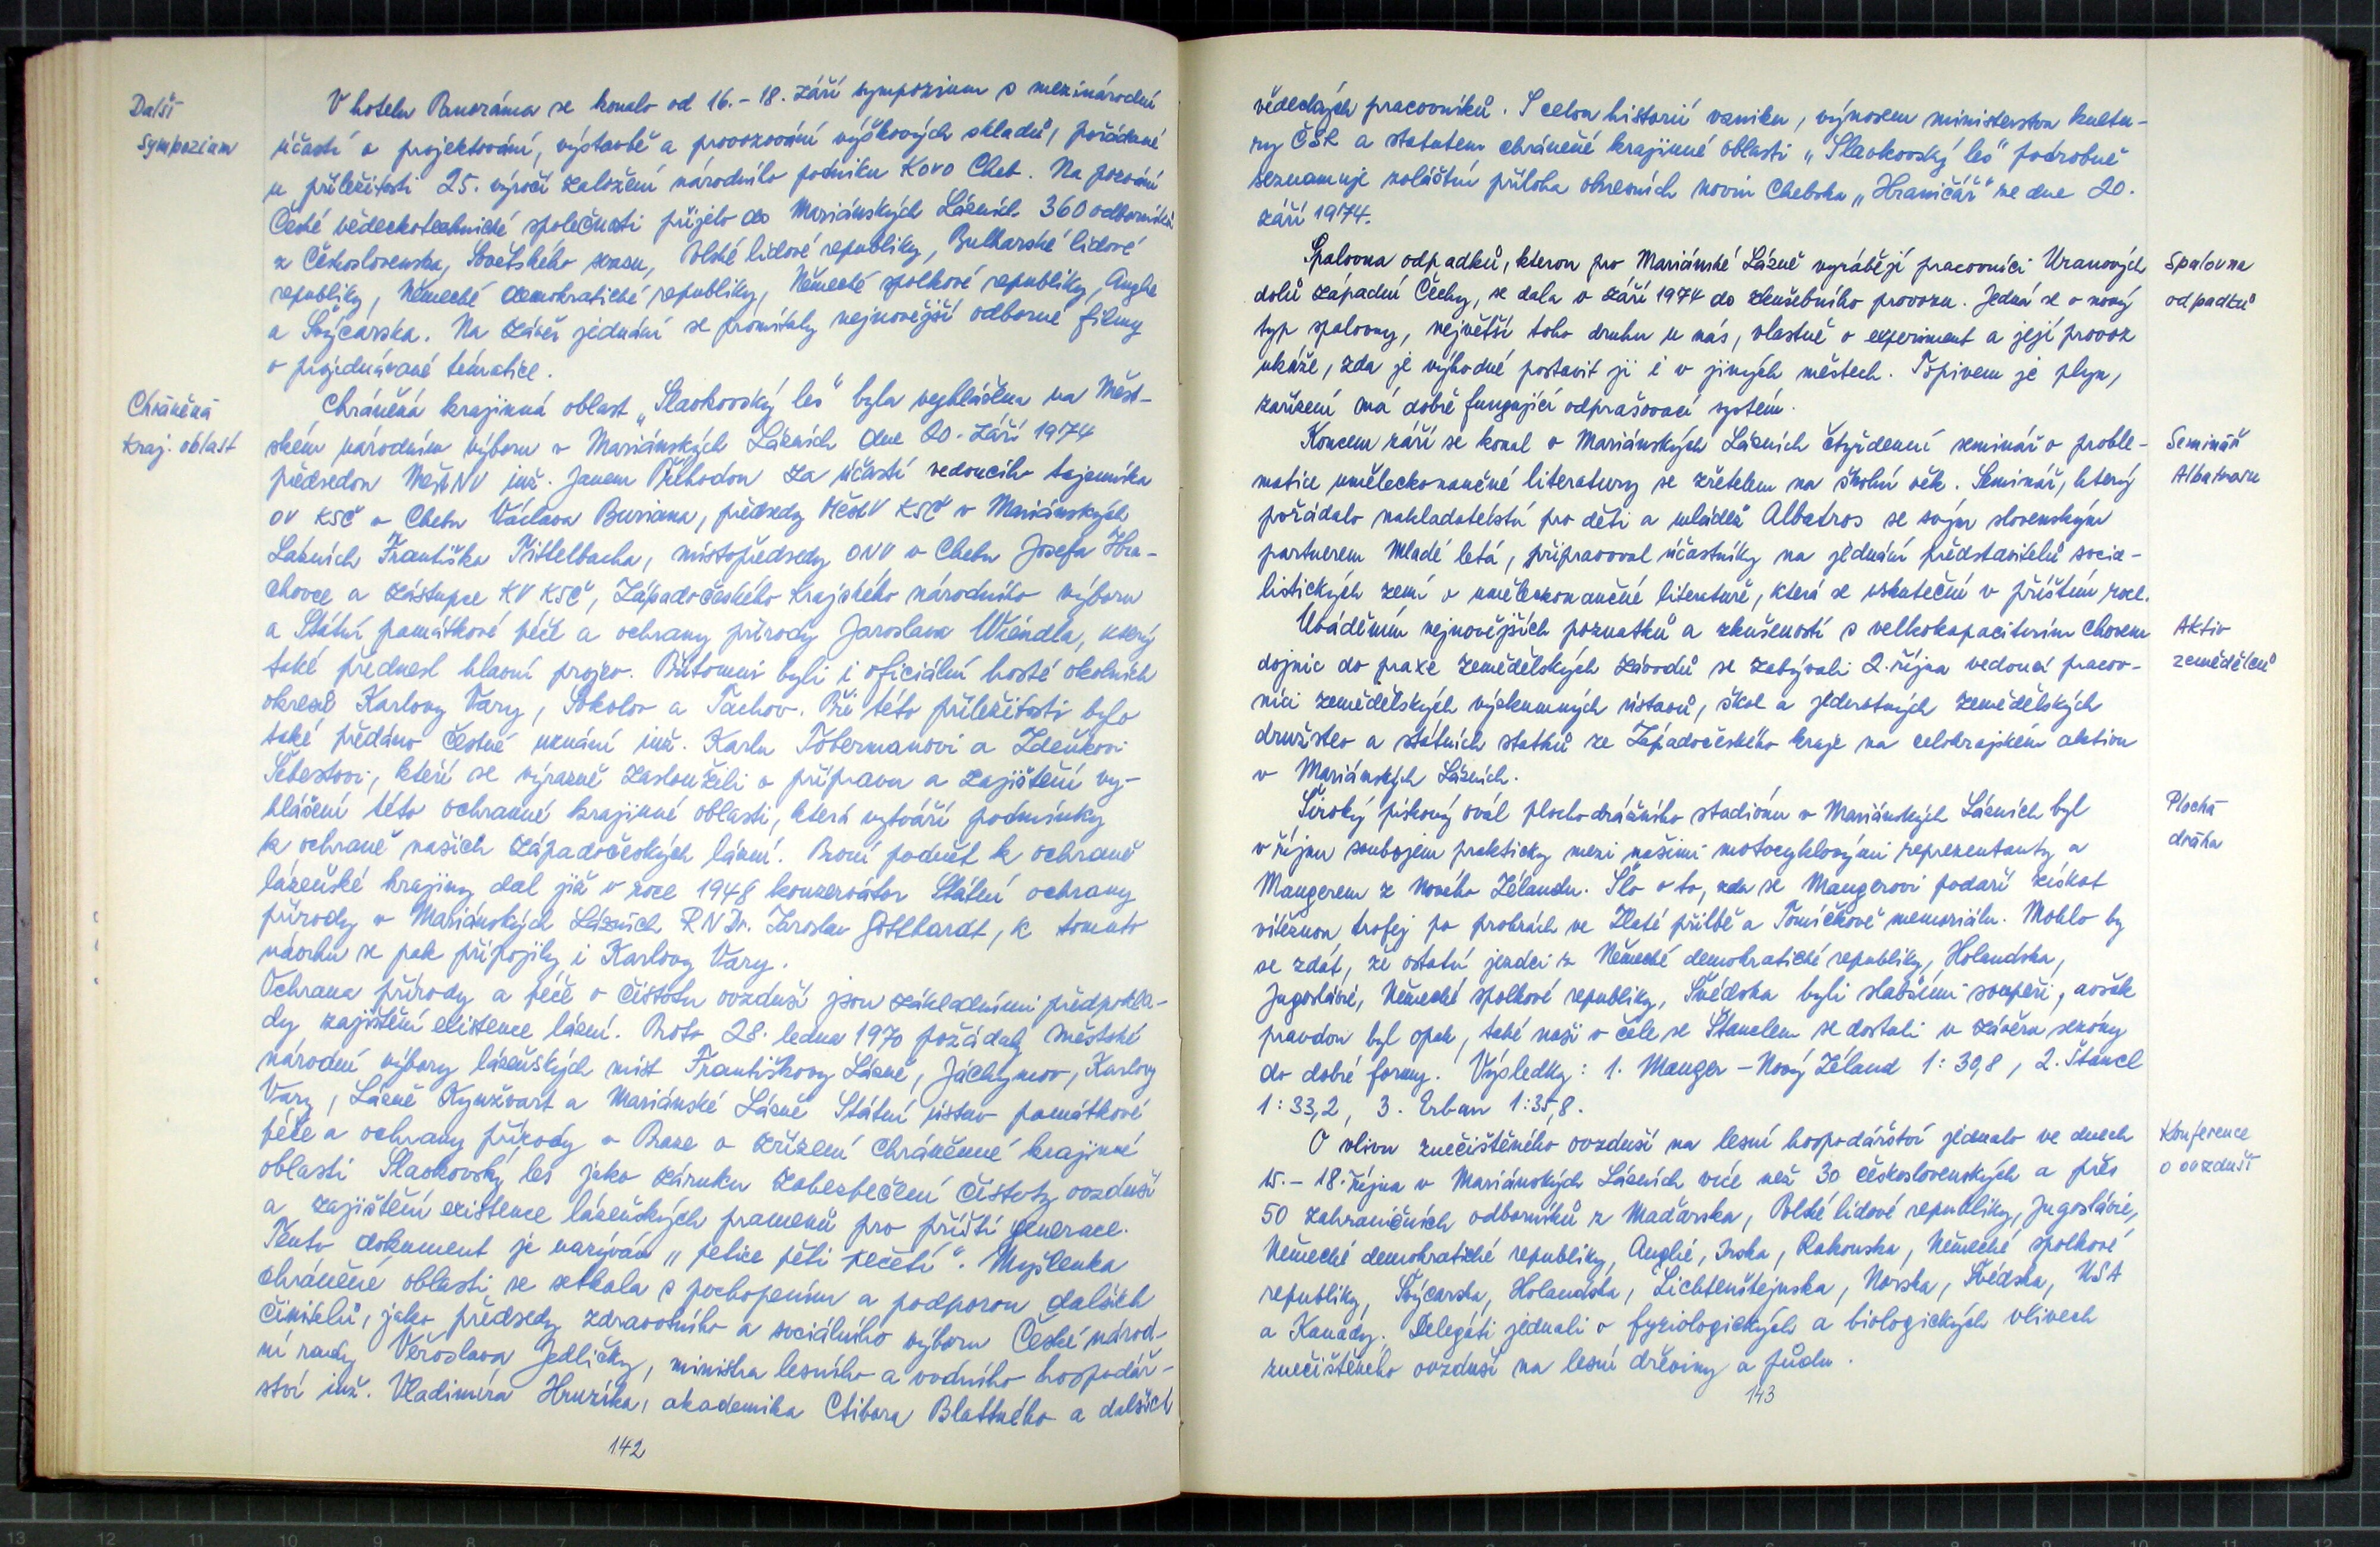 Další
Sympozium
V hotelu Panoráma se konalo od 16.-18. září sympozium s mezinárodní
účastí o projektování, výstavbě a provozování výškových skladů, pořádané
u příležitosti 25. výročí založení národního podniku Kovo Cheb. Na pozvání
České vědeckotechnické společnosti přijelo do Mariánských Lázních 360 odborníků
z Československa, Sovětského svazu, Polské lidové republiky, Bulharské lidové
republiky, Německé demokratické republiky, Německé spolkové republiky, Anglie
a Švýcarska. Na závěr jednání se promítaly nejnovější odborné filmy
o projednávané tématice.
Chráněná
Kraj. oblast
Chráněná krajinná oblast „Slavkovský les" byla vyhlášena na Měst-
ském národním výboru v Mariánských Lázních dne 20. září 1974
předsedou MěstNV inž. Janem Příhodou za účasti vedoucího tajemníka
OV KSČ v Chebu Václava Buriana, předsedy MěstV KSČ v Mariánských
Lázních Františka Tittelbacha, místopředsedy ONV v Chebu Josefa Hra-
chovce a zástupce KV KSČ, Západočeského Krajského národního výboru
a Státní památkové péče a ochrany přírody Jaroslava Wiendla, který
také přednesl hlavní projev. Přítomni byli i oficiální hosté okolních
okresů Karlovy Vary, Sokolov a Tachov. Při této příležitosti bylo
také předáno čestné uznání inž. Karlu Tobermanovi a Zdeňkovi
Šebestovi, kteří se výrazně zasloužili o přípravu a zajištění vy-
hlášení této ochranné krajinné oblasti, která vytváří podmínky
k ochraně našich západočeských lázní. První podnět k ochraně
lázeňské krajiny dal již v roce 1948 konzervátor Státní ochrany
přírody v Mariánských Lázních RNDr. Jaroslav Gotthardt, k tomuto
návrhu se pak připojily i Karlovy Vary.
Ochrana přírody a péče o čistotu ovzduší jsou základními předpokla-
dy zajištění existence lázní. Proto 28. ledna 1970 požádaly městské
národní výbory lázeňských míst Františkovy Lázně, Jáchymov, Karlovy
Vary, Lázně Kynžvart a Mariánské Lázně Státní ústav památkové
péče a ochrany přírody v Praze o zřízení chráněnné krajinné
oblasti Slavkovský les jako záruku zabezpečení čistoty ovzduší
a zajištění existence lázeňských pramenů pro příští generace.
Tento dokument je nazýván „petice pěti pečetí". Myšlenka
chráněné oblasti se setkala s pochopením a podporou dalších
činitelů, jako předsedy zdravotního a sociálního výboru České národ-
ní rady Věroslava Jedličky, ministra lesního a vodního hospodář-
ství inž. Vladimíra Hruzíka, akademika Ctibora Blattného a dalších
142
vědeckých pracovníků. S celou historií vzniku, výnosem ministerstva kultu-
ry ČSR a statutem chráněné krajinné oblasti „Slavkovský les" podrobně
seznamuje zvláštní příloha okresních novin Chebska „Hraničář" ze dne 20.
září 1974.
Spalovna
odpadků
Spalovna odpadků, kterou pro Mariánské Lázně vyrábějí pracovníci Uranových
dolů západní Čechy, se dala v září 1974 do zkušebního provozu. Jedná se o nový
typ spalovny, největší toho druhu u nás, vlastně o experiment a její provoz
ukáže, zda je výhodné postavit ji i v jiných městech. Topivem je plyn,
zařízení má dobře fungující odprašovací systém.
Seminář
Albatrosu
Koncem září se konal v Mariánských Lázních čtyřdenní seminář o proble-
matice uměleckonaučné literatury se zřetelem na školní věk. Seminář, který
pořádalo nakladatelství pro děti a mládež Albatros se svým slovenským
partnerem Mladé letá, připravoval účastníky na jednání představitelů socia-
listických zemí o uměleckonaučné literatuře, která se uskuteční v příštím roce.
Aktiv
zemědělců
Uváděním nejnovějších poznatků a zkušeností s velkokapacitním chovem
dojnic do praxe zemědělských závodů se zabývali 2. října vedoucí pracov-
níci zemědělských výzkumných ústavů, škol a jednotných zemědělských
družstev a státních statků ze Západočeského kraje na celokrajském aktivu
v Mariánských Lázních.
Plochá
dráha
Široký pískový ovál plochodrážního stadiónu v Mariánských Lázních byl
v říjnu soubojem prakticky mezi našimi motocyklovými reprezentanty a
Maugerem z Nového Zélandu. Šlo o to, zda se Maugerovi podaří získat
vítěznou trofej po prohrách ve Zlaté přilbě a Tomíčkově memoriálu. Mohlo by
se zdát, že ostatní jezdci z Německé demokratické republiky, Holandska,
Jugoslávie, Německé spolkové republiky, Švédska byli slabšími soupeři, avšak
pravdou byl opak, také naši v čele se Štanclem se dostali v závěru sezóny
do dobré formy. Výsledky: 1. Mauger - Nový Zéland 1:30,8, 2. Štancl
1:33,2, 3. Erban 1:35,8.
Konference
o ovzduší
O vlivu znečištěného ovzduší na lesní hospodářství jednalo ve dnech
15.-18. října v Mariánských Lázních více než 30 československých a přes
50 zahraničních odborníků z Maďarska, Polské lidové republiky, Jugoslávie,
Německé demokratické republiky, Anglie, Irska, Rakouska, Německé spolkové
republiky, Švýcarska, Holandska, Lichtenštejnska, Norska, Švédska, USA
a Kanady. Delegáti jednali o fyziologických a biologických vlivech
znečištěného ovzduší na lesní dřeviny a půdu.
143
13 12 11 10 9 8 7 6 5 4 3 2